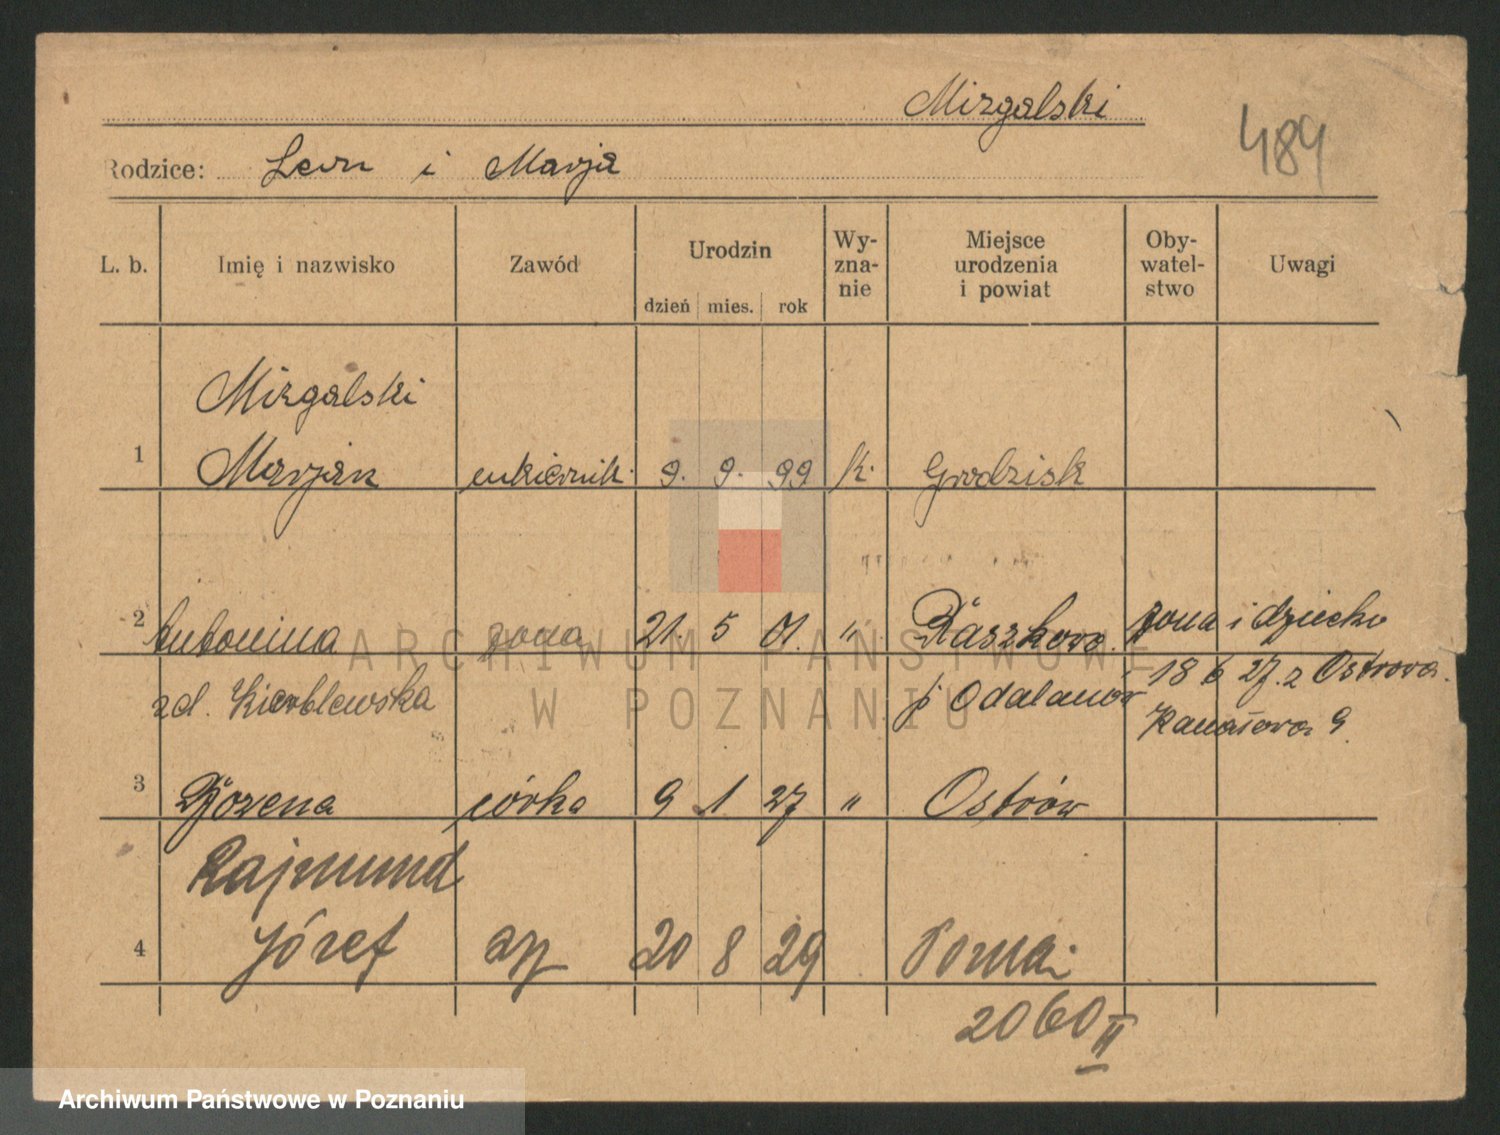 Mizgalski
489
Rodzice: Leon i Marja
L. b. Imię i nazwisko Zawód Urodzin dzień mies. rok Wy-zna-nie Miejsce urodzenia i powiat Oby-watel-stwo Uwagi
Mizgalski
1 Marjan cukiernik. 9. 9. 99 k. Grodzisk
2 Antonina żona 21. 5 01. „ Raszkow. żona i dziecko
zd. p. Odalanów 18 6 27. z Ostrowa.
Kanałowa 9.
3 Bożena córka 9 1 27 „ Ostrów
Rajmund
4 Józef syn 20 8 29 Poznań
2060 II
ARCHIWUM PAŃSTWOWE
W POZNANIU
Archiwum Państwowe w Poznaniu